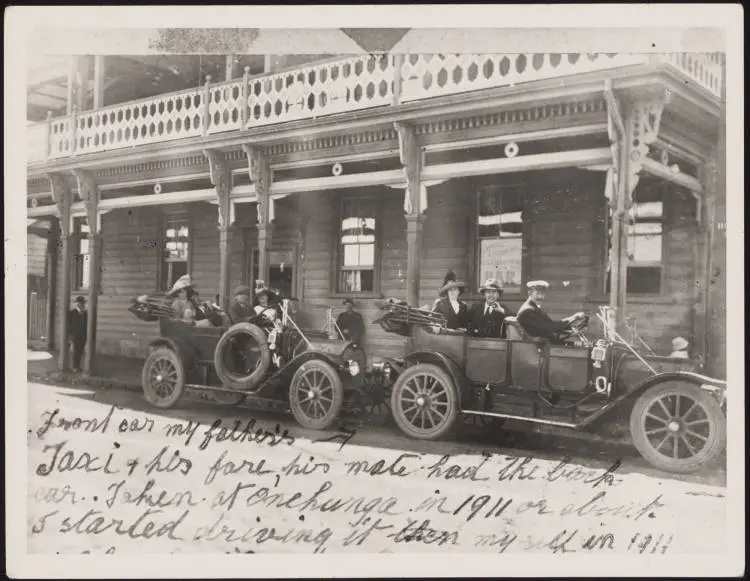 Front car my father's →
Taxi & his fare, his mate had the back
car.. Taken at Onehunga in 1911 or about.
I started driving it then my self in 1911